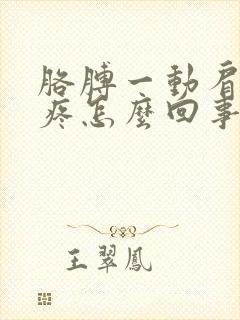 胳膊一動肩
疼怎麼回事
王翠鳳